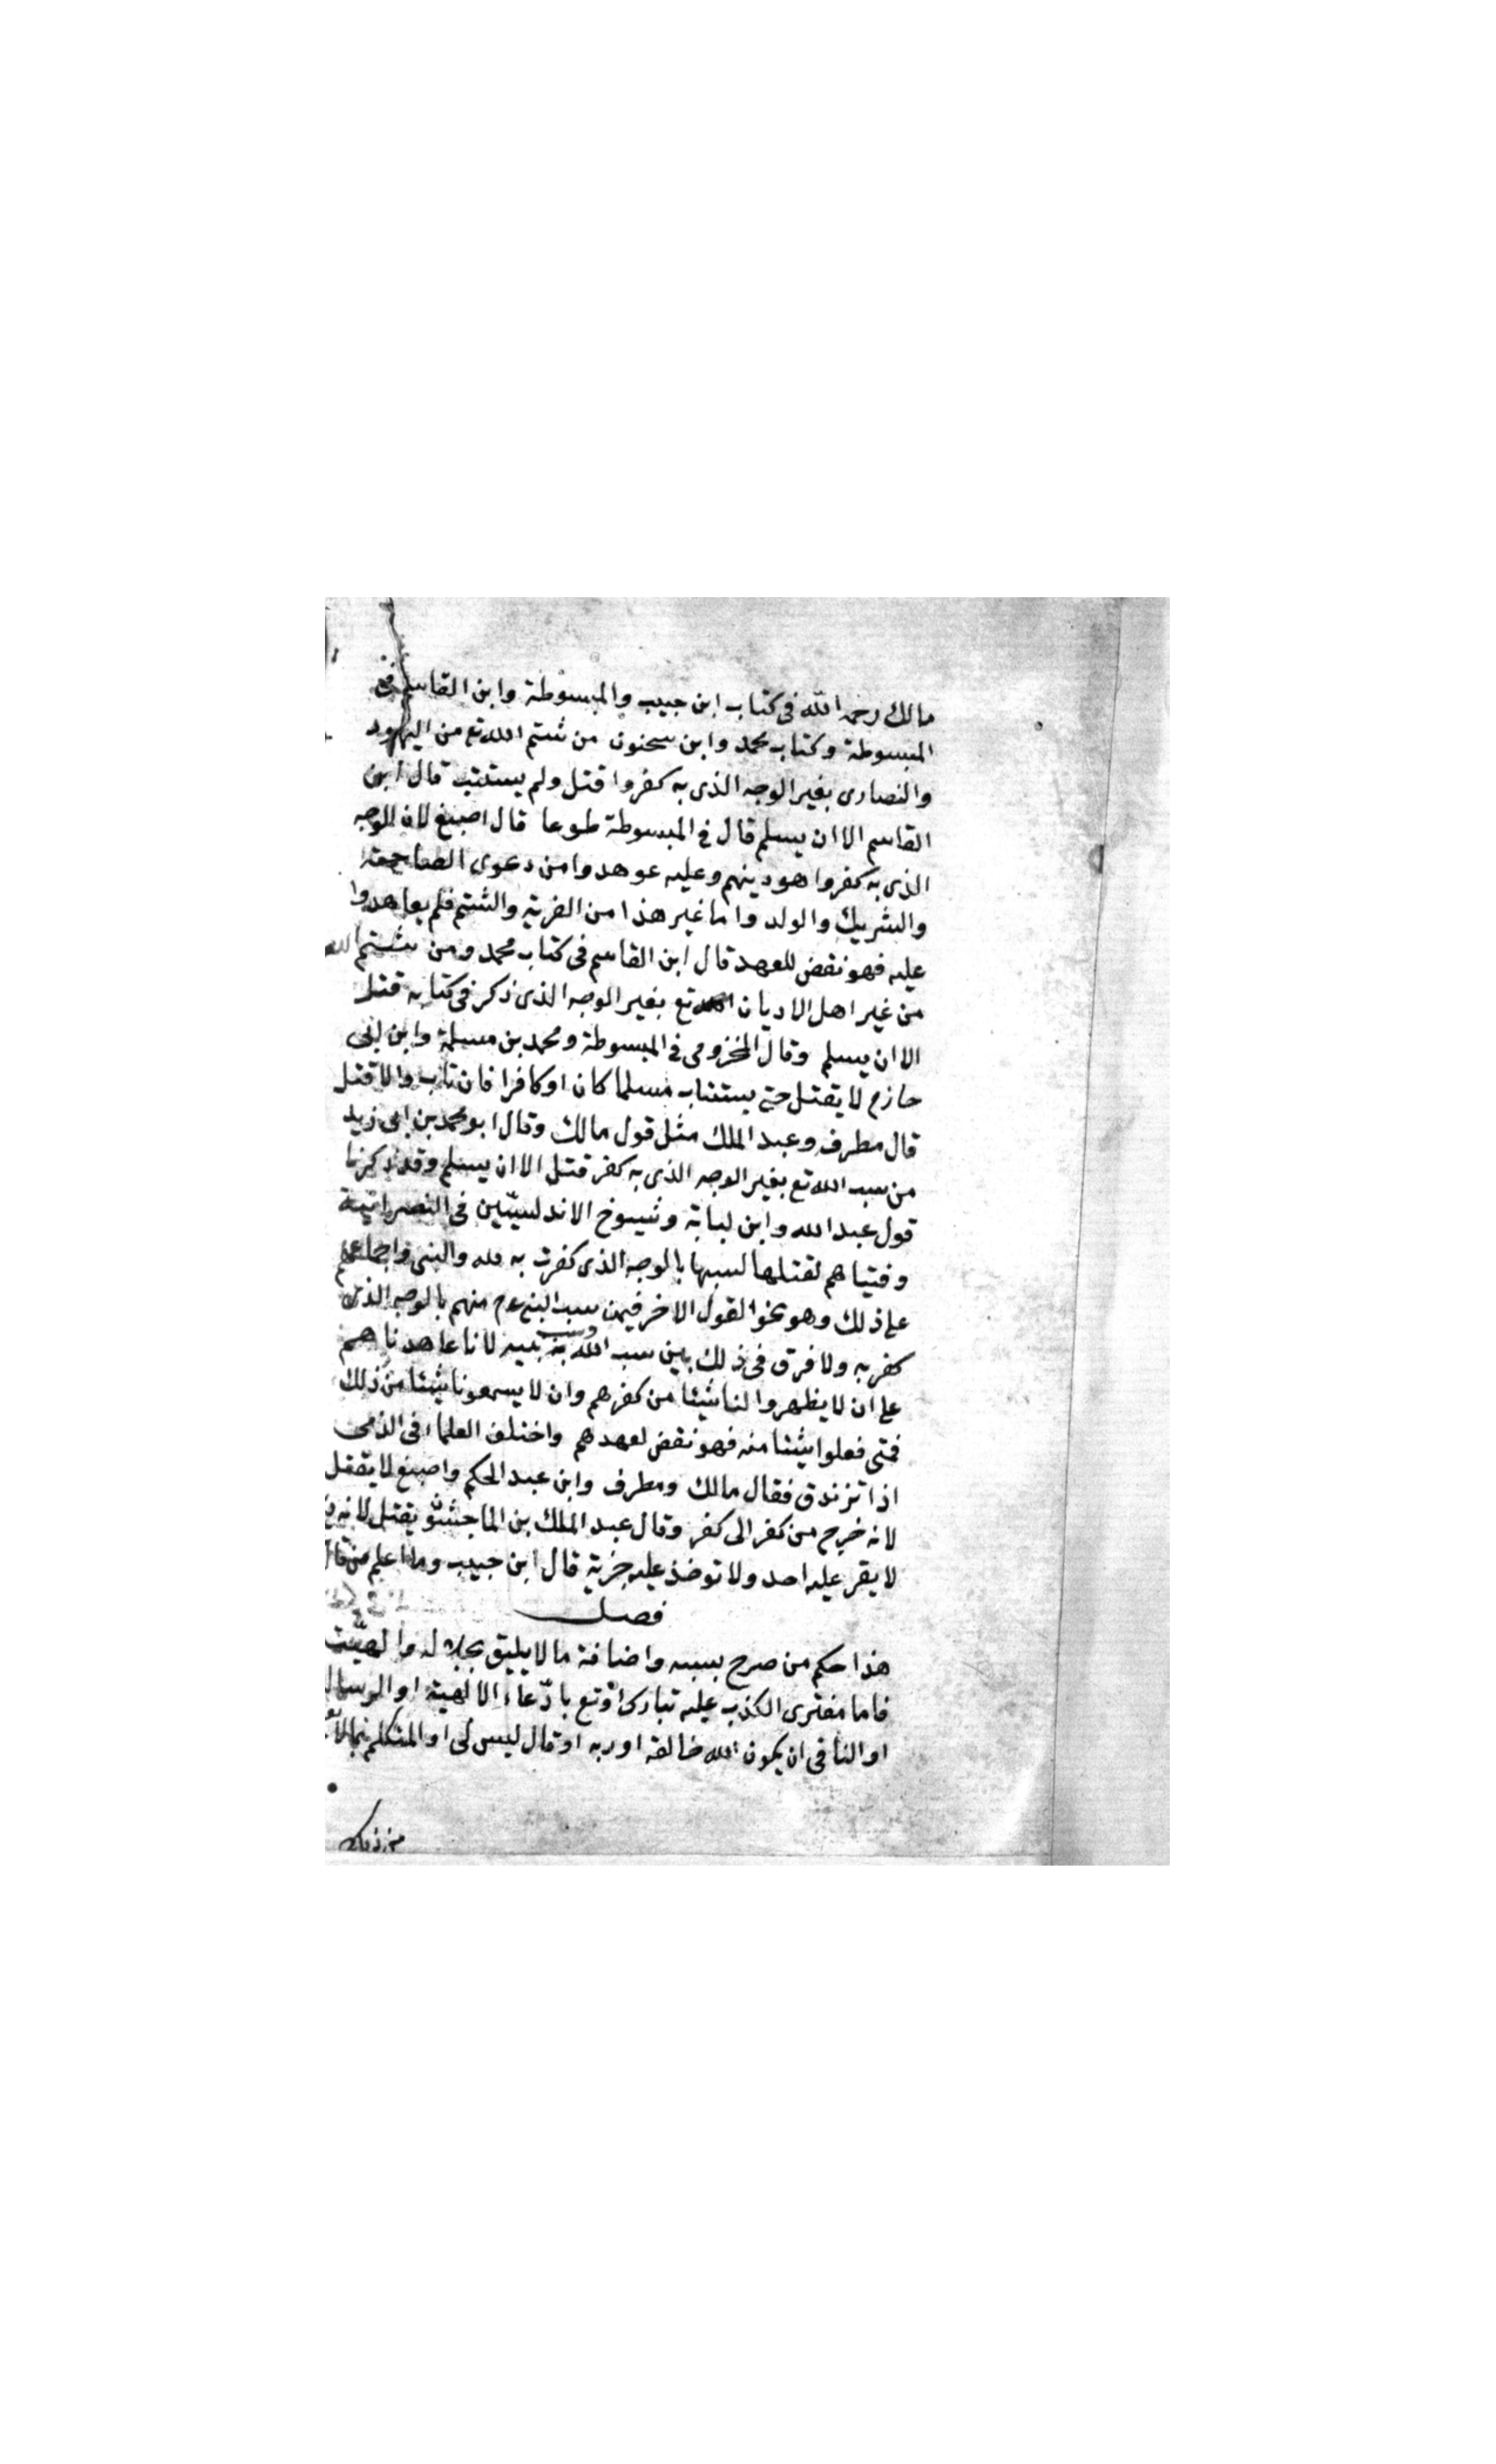 مالك رحمه الله فى كتاب ابن حبيب والمبسوطة وابن القاسم فى
المبسوطة وكتاب محمد وابن سحنون من شتم الله تع من اليهود
والنصارى بغير الوجه الذى به كفروا قتل ولم يستتب قال ابن
القاسم الا ان يسلم قال فى المبسوطة طوعا قال اصبغ لان الوجه
الذى به كفروا هو دينهم وعليه عوهدوا من دعوى الصاحبة
والشريك والولد واما غير هذا من الفرية والشتم فلم يعاهدوا
عليه فهو نقض للعهد قال ابن القاسم فى كتاب محمد ومن شتم الله
من غير اهل الاديان الله تع بغير الوجه الذى ذكر فى كتابه قتل
الا ان يسلم وقال المخزومى فى المبسوطة ومحمد بن مسلمة وابن ابى
حازم لا يقتل حتى يستتاب مسلما كان او كافرا فان تاب والا قتل
قال مطرف وعبد الملك مثل قول مالك وقال ابو محمد بن ابى زيد
من سب الله تع بغير الوجه الذى به كفر قتل الا ان يسلم وقد ذكرنا
قول عبد الله وابن لبابة وشيوخ الاندلسيّين فى النصرانية
وفتياهم لقتلها لسبها بالوجه الذى كفرت به لله والنبى واجماعهم
على ذلك وهو نحو القول الاخر فيمن سب النبى عم منهم بالوجه الذى
كفر به ولا فرق فى ذلك بين سب الله وسب نبيه لانا عاهدناهم
على ان لا يظهروا لنا شيئا من كفرهم وان لا يسمعونا شيئا من ذلك
فمتى فعلوا شيئا منه فهو نقض لعهدهم واختلف العلماء فى الذمى
اذا تزندق فقال مالك ومطرف وابن عبد الحكم واصبغ لا يقتل
لانه خرج من كفر الى كفر وقال عبد الملك بن الماجشو يقتل لانه
لا يقر عليه احد ولا توخذ عليه جزية قال ابن حبيب وما اعلم من قال
فصل
هذا حكم من صرح بسبه واضافة ما لا يليق بجلاله والهيّت
فاما مفترى الكذب عليه تبارك وتع بادّعاء الالهية او الرسال
او النافى ان يكون الله خالقه او ربه او قال ليس لى او المتكلم بما لا
من ذلك